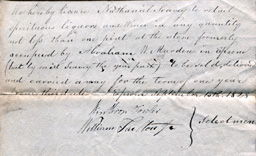 We hereby licence Nathaniel Leavey to retail
spirituous liquors and wine in any quantity
not less than one pint at the store formerly
occupied by Abraham W. Marden in Epsom
(but by said Leavey the year past) to be sold, delivered
and carried away for the term of one year
from this date Epsom
William Jr
Selectmen